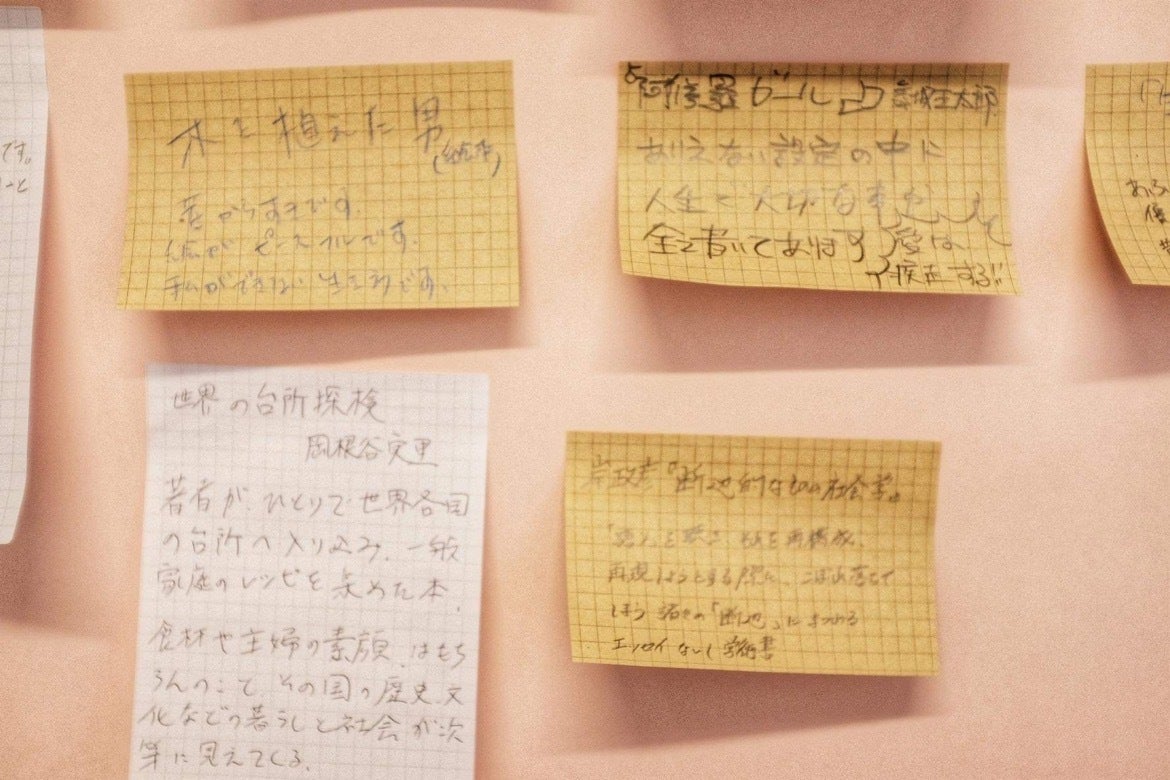 です。
こと
木を植えた男
(絵本)
昔からすきです。
絵がピースフルです。
私ができない生き方です。
阿修羅ガール 舞城王太郎
ありえない設定の中に
人生で大切な事が
全て書いてあります
愛は
疾走する!!
世界の台所探検
岡根谷実里
著者が、ひとりで世界各国
の台所へ入り込み、一般
家庭のレシピを集めた本。
食材や主婦の素顔、はもち
ろんのこと、その国の歴史、文
化などの暮らしと社会が次
第に見えてくる。
岸政彦『断片的なものの社会学』
再構成、
再現しようとする際に、こぼれ落ちて
しまう 「断片」にまつわる
エッセイないし学術書